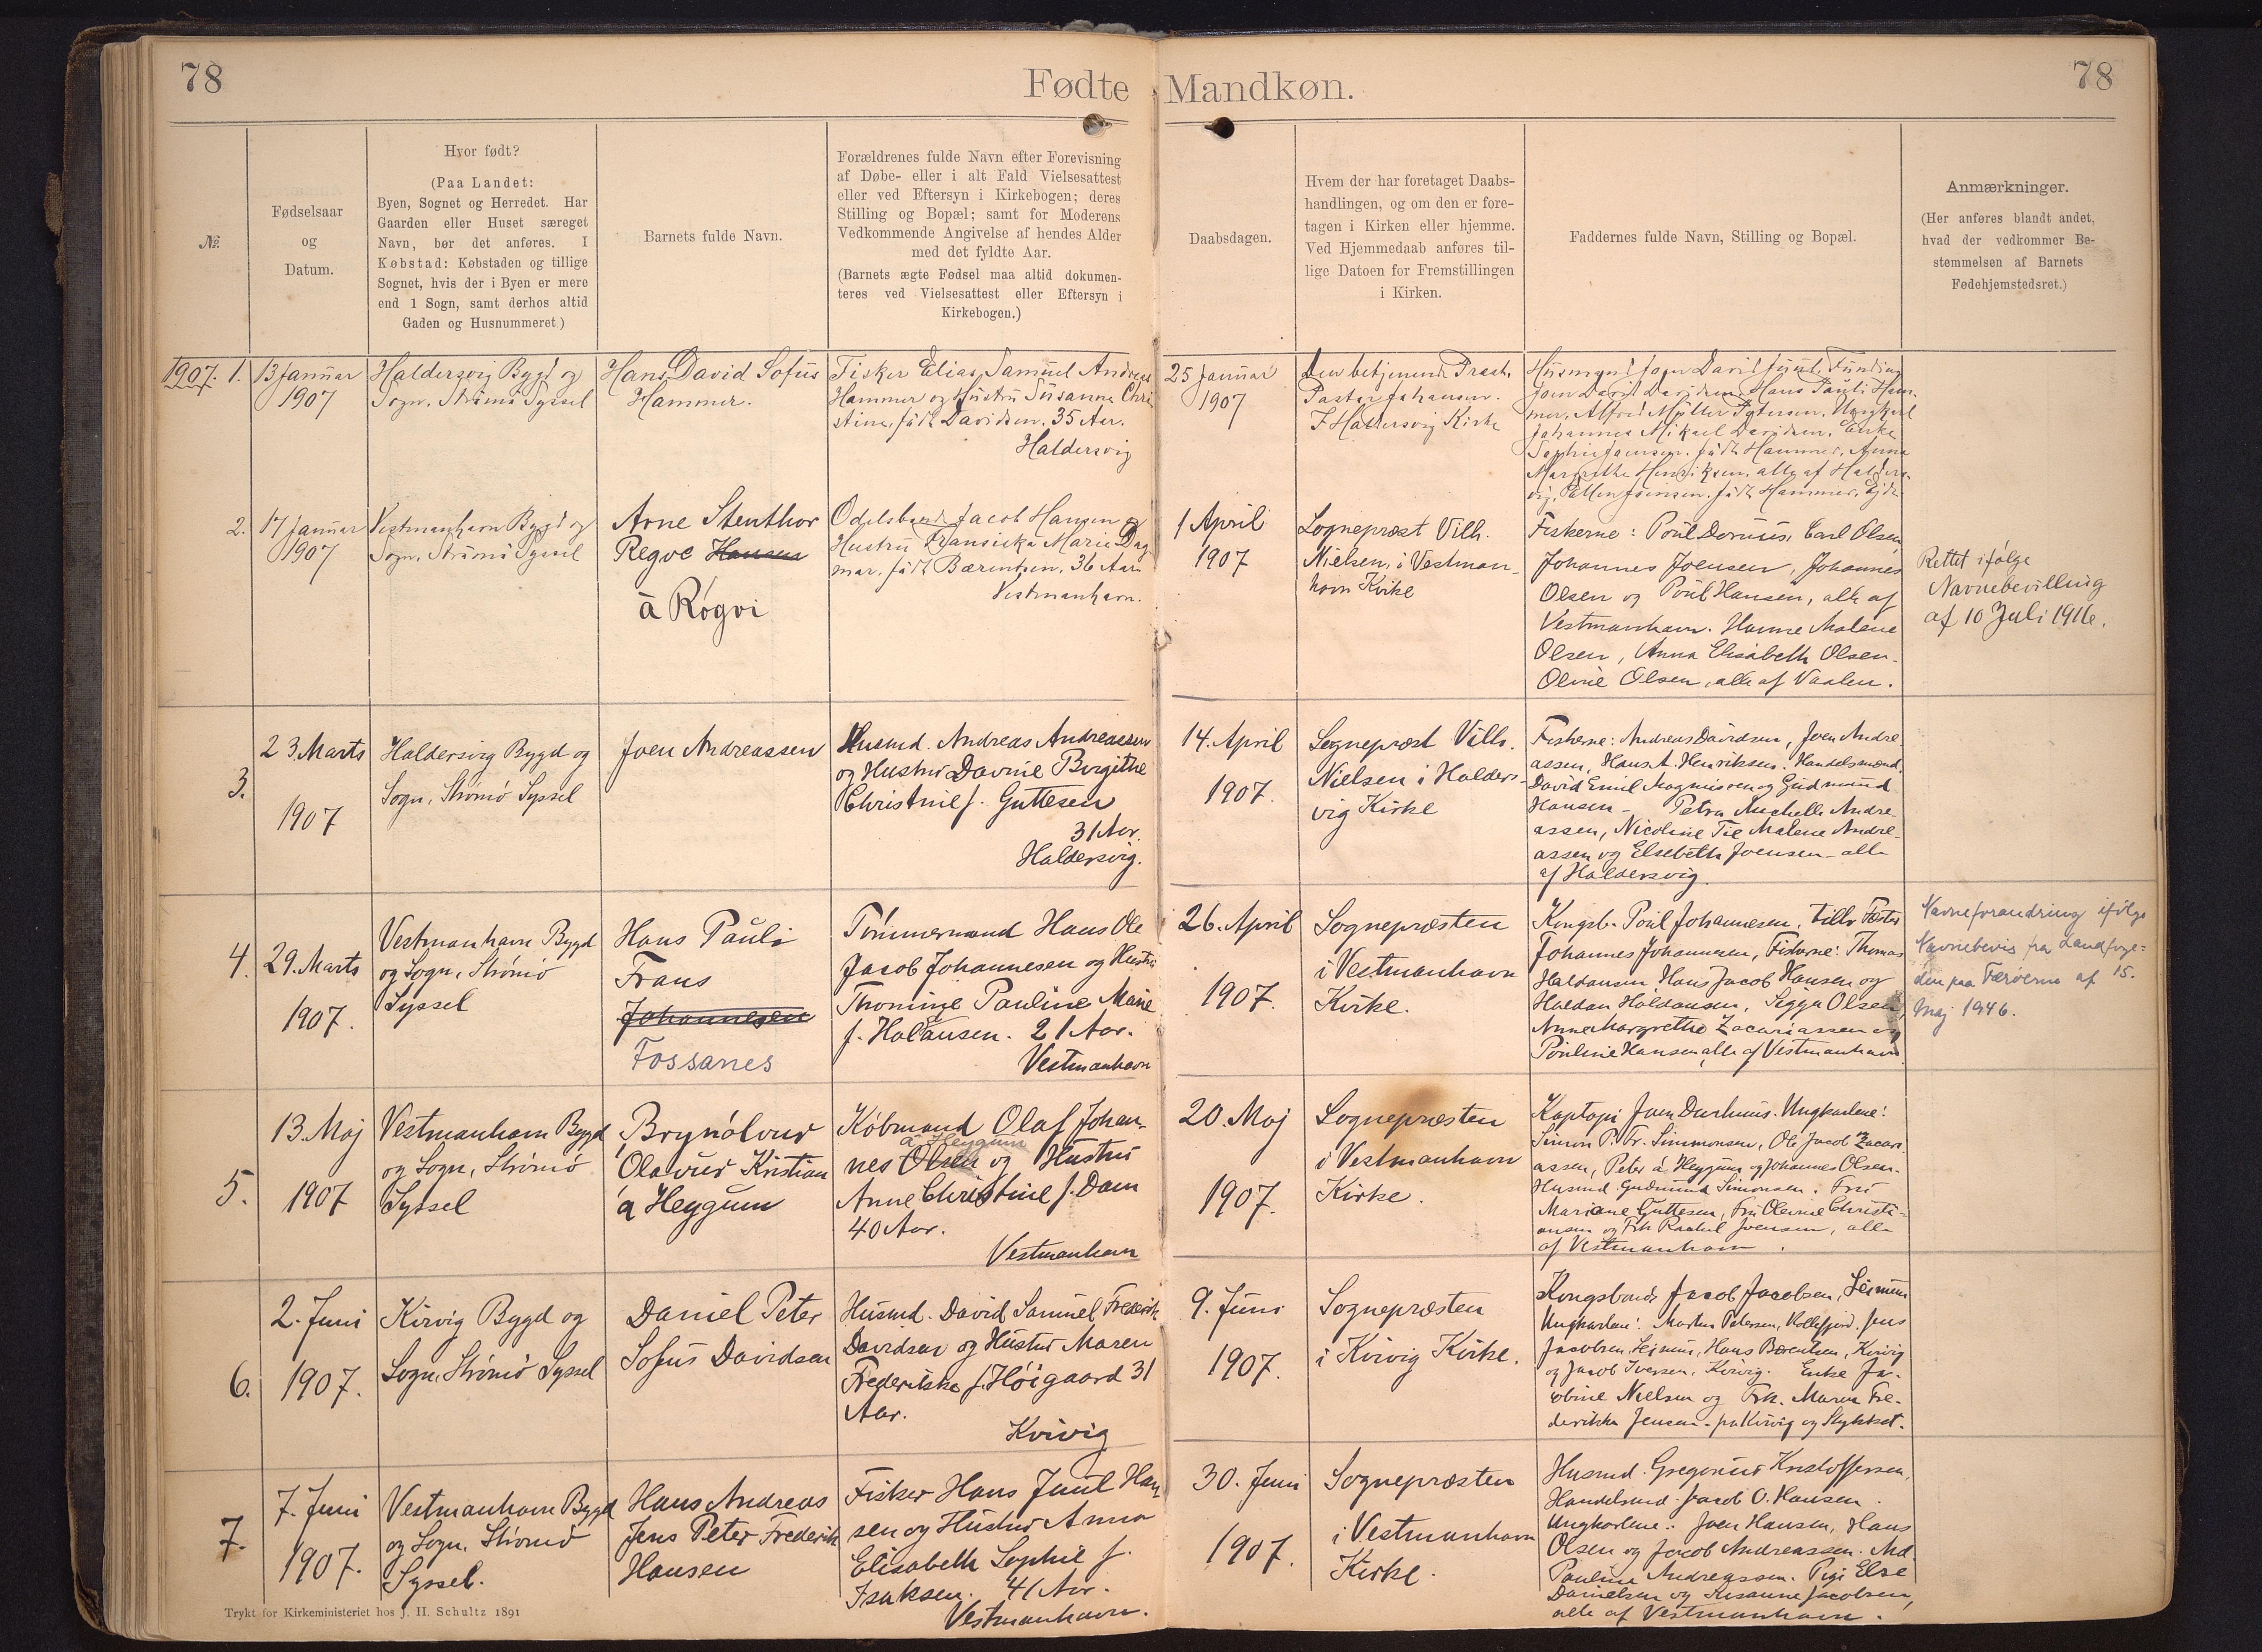 78
Fødte Mandkøn.
78
№
Fødselsaar
og
Datum.
Hvor født?
(Paa Landet:
Byen, Sognet og Herredet. Har
Gaarden eller Huset særeget
Navn, bør det anføres. I
Købstad: Købstaden og tillige
Sognet, hvis der i Byen er mere
end 1 Sogn, samt derhos altid
Gaden og Husnummeret.)
Barnets fulde Navn.
Forældrenes fulde Navn efter Forevisning
af Døbe- eller i alt Fald Vielsesattest
eller ved Eftersyn i Kirkebogen; deres
Stilling og Bopæl; samt for Moderens
Vedkommende Angivelse af hendes Alder
med det fyldte Aar.
(Barnets ægte Fødsel maa altid dokumen-
teres ved Vielsesattest eller Eftersyn i
Kirkebogen.)
Daabsdagen.
Hvem der har foretaget Daabs-
handlingen, og om den er fore-
tagen i Kirken eller hjemme.
Ved Hjemmedaab anføres til-
lige Datoen for Fremstillingen
i Kirken.
Faddernes fulde Navn, Stilling og Bopæl.
Anmærkninger.
(Her anføres blandt andet,
hvad der vedkommer Be-
stemmelsen af Barnets
Fødehjemstedsret.)
1907. 1.
13 Januar
1907
Haldersvig Bygd og
Sogn, Strømø Syssel
Hans David Sofus
Hammer.
Fisker Elias Samuel Andreas
Hammer og Hustru Susanne Chri
stine, född Davidsen. 35 Aar.
Haldersvig
25 Januar
1907
Den betjenende Præst,
Pastor Johansen.
I Haldersvig Kirke
Joen David Davidsen, Hans Pauli Ham-
mer, Alfred Müller Petersen, Ungkarl
Johannes Mikael Davidsen. Enke
Sophie Joensen, född Hammer, Anna
Margrethe Henriksen, alle af Halders-
vig,
2.
17 Januar
1907
Vestmanhavn Bygd og
Sogn, Strømø Syssel
Arne Stenthor
Regve Hansen
à Røgvi
Odelsbonde Jacob Hansen og
Hustru Fransiska Marie Dag
mar, född Bærentsen, 36 Aar
Vestmanhavn.
1 April
1907
Sognepræst Vilh.
Nielsen, i Vestman-
havn Kirke
Fiskerne: Poul Carl Olsen
Johannes Joensen, Johannes
Olsen og Poul Hansen, alle af
Vestmanhavn. Hanne Malene
Olsen, Anna Elisabeth Olsen.
Oline Olsen, alle af Vaalen.
Rettet ifølge
Navnebevilling
af 10 Juli 1916.
3.
23. Marts
1907
Haldersvig Bygd og
Sogn, Strømø Syssel
Joen Andreassen
Husmd. Andreas Andreassen
og Hustru Davine Birgithe
Christine f. Guttesen
31 Aar.
Haldersvig.
14. April
1907.
Sognepræst Vilh.
Nielsen i Halders-
vig Kirke
Fiskerne: Andreas Davidsen, Joen Andre-
assen, Hans A. Henriksen. Handelsmænd.
David Emil Magnussen og Gudmund
Hansen - Petra Michelle Andre-
assen, Nicoline Tie Malene Andre-
assen og Elsebeth Joensen - alle
af Haldersvig.
4.
29. Marts
1907.
Vestmanhavn Bygd
og Sogn, Strømø
Syssel
Hans Pauli
Frans
Johannesen
Fossanes
Tømmermand Hans Ole
Jacob Johannesen og Hustru
Thomine Pauline Marie
f. Haldansen. 21 Aar.
Vestmanhavn
26. April
1907.
Sognepræsten
i Vestmanhavn
Kirke.
Kongsb. Poul Johannesen, Fæster
Johannes Johannesen, Fiskerne: Thomas
Haldansen, Hans Jacob Hansen og
Haldan Haldansen, Segga Olsen,
Anne Margrethe Zacariassen og
Pouline Hansen, alle af Vestmanhavn.
Navneforandring ifølge
Navnebevis fra Landfoge-
den paa Færøerne af 15.
Maj 1946.
5.
13. Maj
1907
Vestmanhavn Bygd
og Sogn, Strømø
Syssel
Brynólvur
Olavur Kristian
á Heygum
Købmand Olaf Johan-
á Heygum
nes Olsen og Hustru
Anne Christine f. Dam
40 Aar.
Vestmanhavn
20. Maj
1907.
Sognepræsten
i Vestmanhavn
Kirke.
Kaptajn Joen Durhuus. Ungkarlene:
Simon P. Fr. Simmonsen, Ole Jacob Zacari
assen, Peter á Heygum og Johannes Olsen.
Husmd. Gudmund Simonsen. Fru
Mariane Guttesen, Fru Olevine Christi-
ansen og Frk Rakul Joensen, alle
af Vestmanhavn.
6.
2. Juni
1907.
Kvivig Bygd og
Sogn, Strømø Syssel
Daniel Peter
Sofus Davidsen
Husmd. David Samuel Frederik
Davidsen og Hustru Maren
Frederikke f. Høigaard 31
Aar.
Kvivig
9. Juni
1907.
Sognepræsten
i Kvivig Kirke.
Kongsbonde Jacob Jacobsen, Leinum
Ungkarlene: Martin Petersen, Kollefjord. Jens
Jacobsen, Leinum, Hans Bærentsen, Kvivig
og Jacob Iversen, Kvivig. Enke Ja-
cobine Nielsen og Frk. Maren Fre-
derikke Jensen - fra Kvivig og
7.
7. Juni
1907.
Vestmanhavn Bygd
og Sogn, Strømø
Syssel.
Hans Andreas
Jens Peter Frederik
Hansen
Fisker Hans Juul Han
sen og Hustru Anna
Elisabeth Sophie f.
Isaksen. 41 Aar.
Vestmanhavn.
30. Juni
1907.
Sognepræsten
i Vestmanhavn
Kirke.
Husmd. Gregorius Kristoffersen,
Handelsmd. Jacob O. Hansen.
Ungkarlene: Joen Hansen, Hans
Olsen og Jacob Andreassen. Md.
Pauline Andreassen. Pige Else
Danielsen og Susanne Jacobsen,
alle af Vestmanhavn.
Trykt for Kirkeministeriet hos J. H. Schultz 1891